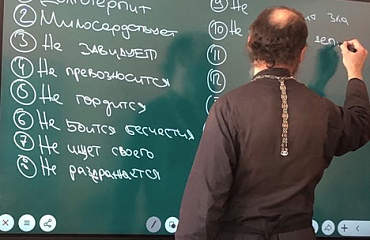 Долготерпит
② Милосердствует
③ Не завидует
④ Не превозносится
⑤ Не гордится
⑥ Не боится бесчестия
⑦ Не ищет своего
⑧ Не раздражается
⑨ Не
зла
⑩ Не
⑪
⑫